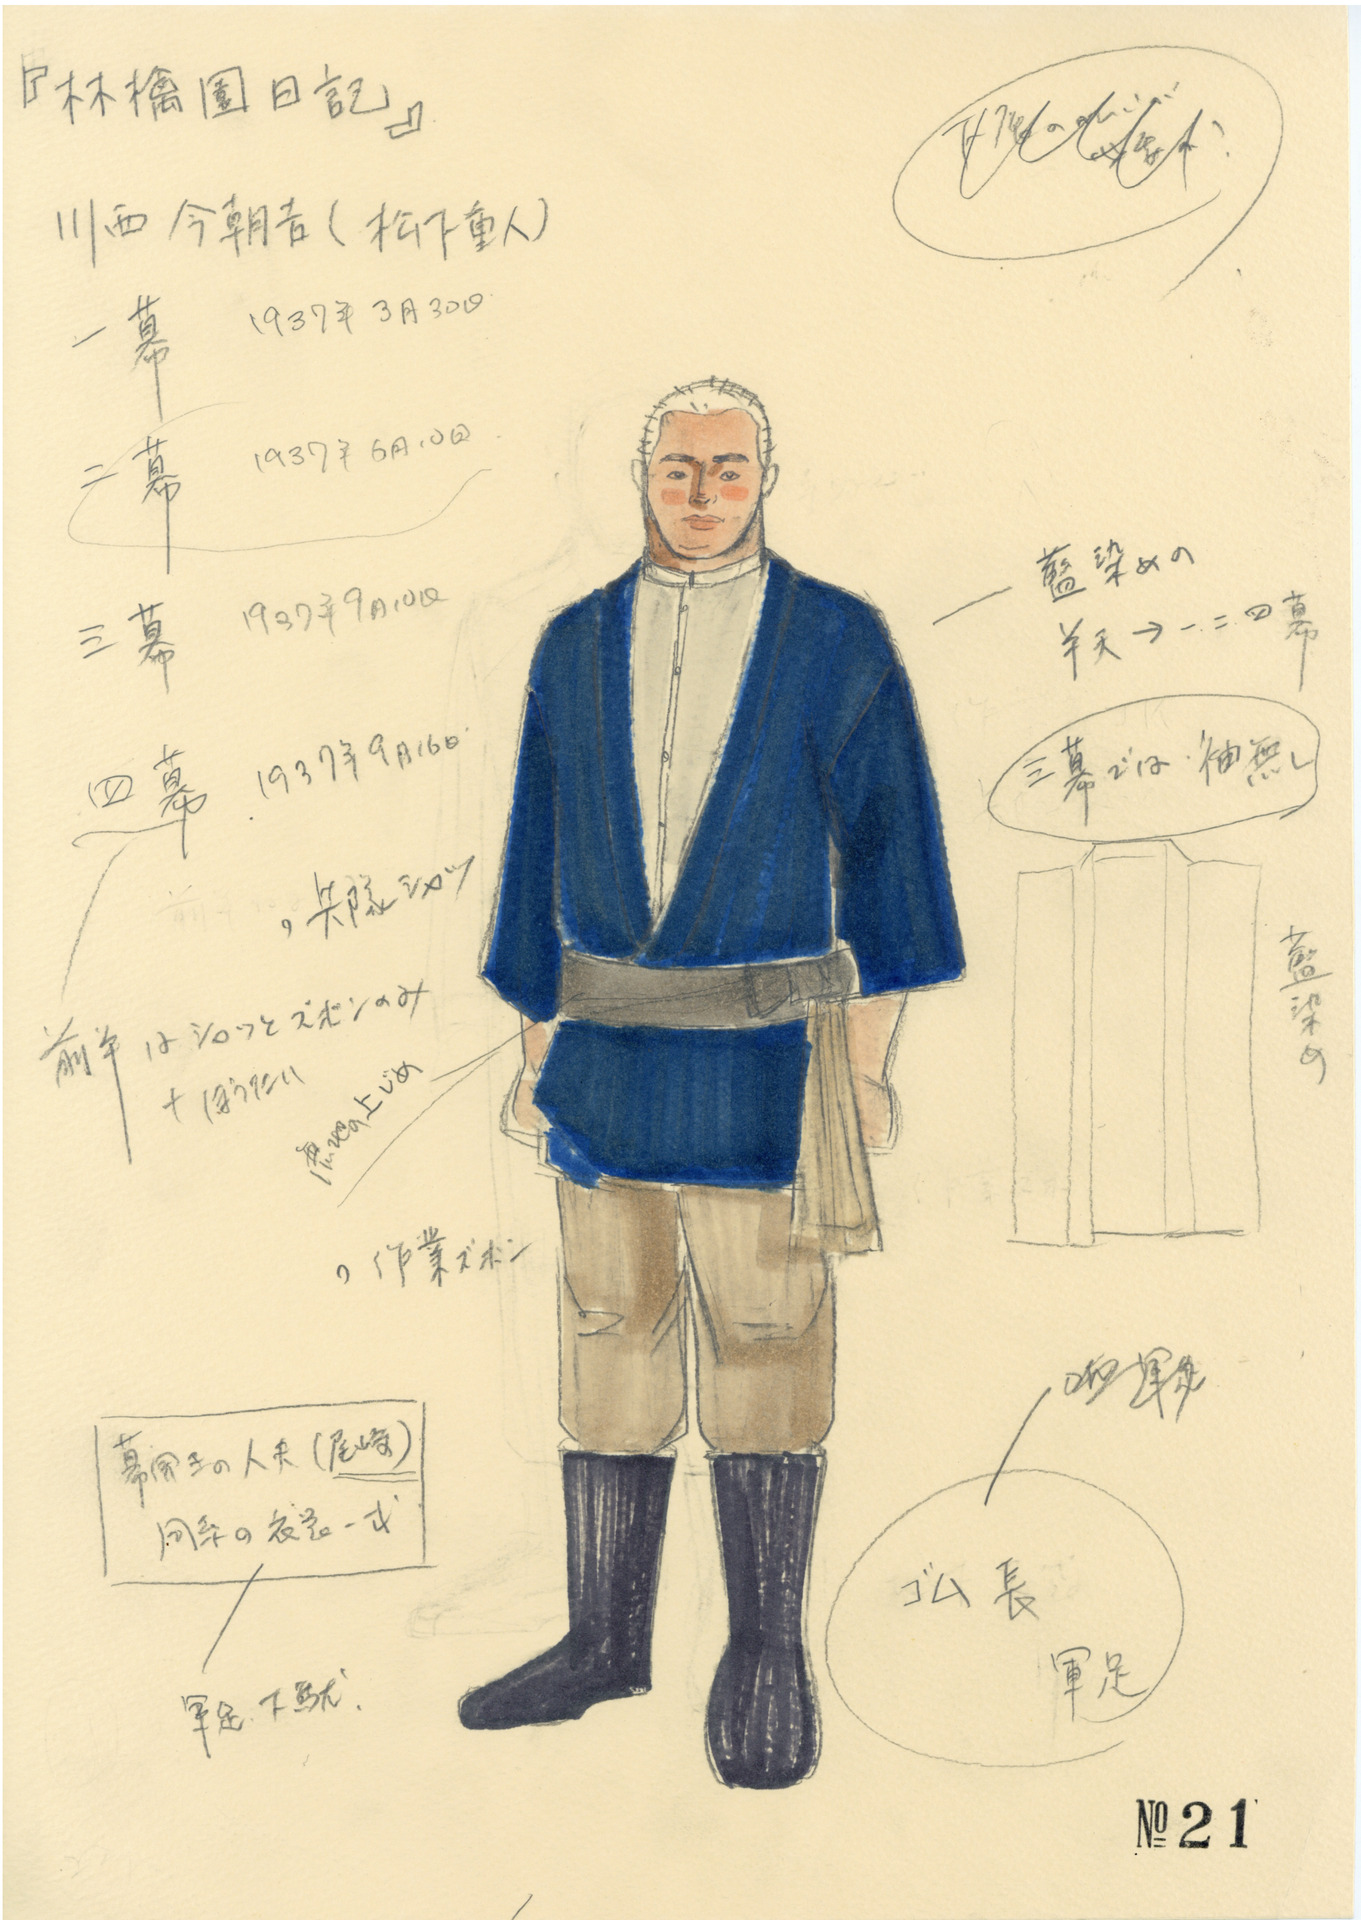 『林檎園日記』
川西 今朝吉(松下重人)
一幕 1937年3月30日
二幕 1937年6月10日
三幕 1937年9月10日
四幕 1937年9月16日
藍染めの
半天→一.二.四幕
三幕では袖無し
藍染め
兵隊シャツ
前半はシャツとズボンのみ
作業ズボン
(尾崎)
同系の衣裳一式
軍足.下駄.
ゴム長
軍足
№21